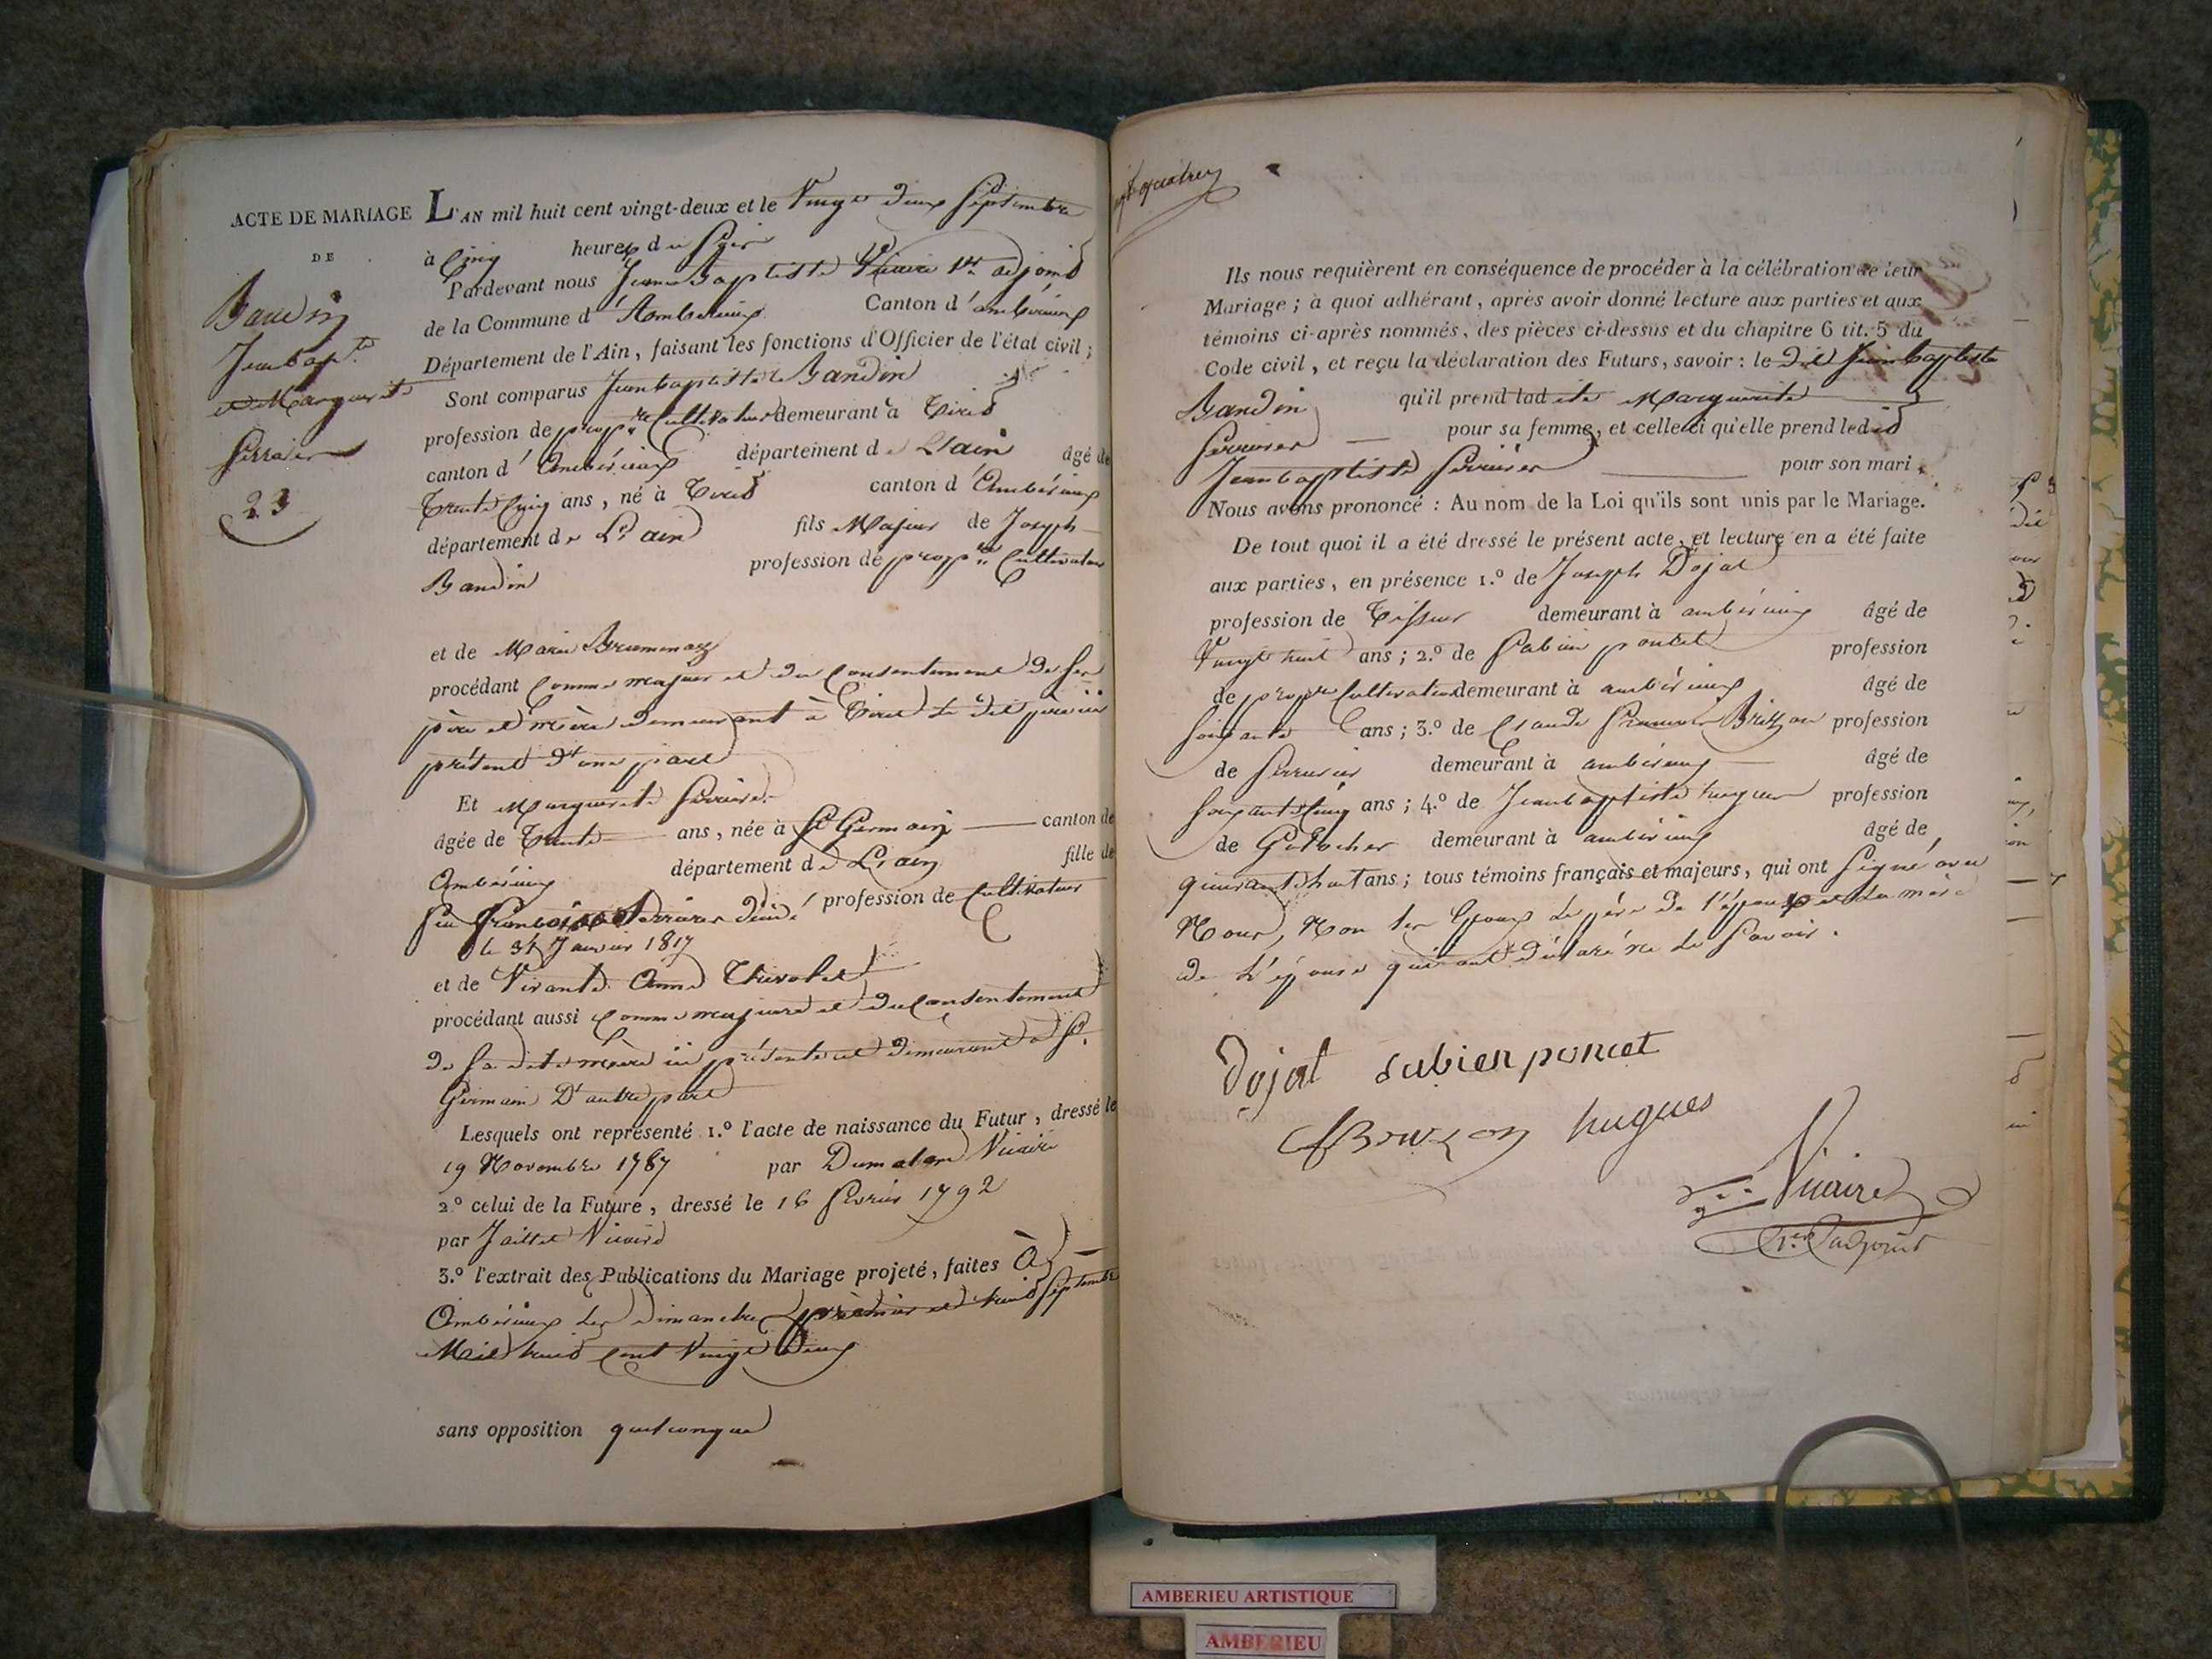 ACTE DE MARIAGE
DE
Baudin
Jean bapte
et Marguerite
Ferrier
23
L'AN mil huit cent vingt-deux et le Vingt deux Septembre
à Cinq heures du Soir
Pardevant nous Jean Baptiste Vicaire 1er adjoint
de la Commune d'Ambérieux Canton d'ambérieux
Département de l'Ain, faisant les fonctions d'Officier de l'état civil;
Sont comparus Jean baptiste Baudin
profession de propre Cultivateur demeurant à Tiret
canton d'Ambérieux département de L'ain âgé de
Trente Cinq ans, né à Tiret canton d'Ambérieux
département de L'ain fils Majeur de Joseph
Baudin profession de propre Cultivateur
et de Marie
procédant Comme majeur et du Consentement de Ses
père et mère demeurant à Tiret Le dit père ici
présent d'une part
Et Marguerite
âgée de Trente ans, née à St Germain canton de
Ambérieux département de L'ain fille de
feu décédé profession de Cultivateur
le 31 Janvier 1817
et de Vivante Anne
procédant aussi Comme majeure et du Consentement
de Sa dite mère ici présente et demeurant à St
Germain D'autre part
Lesquels ont représenté 1.º l'acte de naissance du Futur, dressé le
19 Novembre 1787 par Vicaire
2.º celui de la Future, dressé le 16 février 1792
par Jaillet Vicaire
3.º l'extrait des Publications du Mariage projeté, faites à
Ambérieux les Dimanches premier et huit Septembre
Mil huit Cent Vingt deux
sans opposition quelconque
Ils nous requièrent en conséquence de procéder à la célébration de leur
Mariage; à quoi adhérant, après avoir donné lecture aux parties et aux
témoins ci-après nommés, des pièces ci-dessus et du chapitre 6 tit. 5 du
Code civil, et reçu la déclaration des Futurs, savoir: le dit Jean baptiste
Baudin qu'il prend ladite Marguerite
pour sa femme, et celle-ci qu'elle prend ledit
Jean baptiste pour son mari,
Nous avons prononcé: Au nom de la Loi qu'ils sont unis par le Mariage.
De tout quoi il a été dressé le présent acte, et lecture en a été faite
aux parties, en présence 1.º de Joseph Dojat
profession de Tisseur demeurant à ambérieux âgé de
Vingt huit ans; 2.º de Sabin poncet profession
de propre Cultivateur demeurant à ambérieux âgé de
Soixante ans; 3.º de Claude profession
de Serrurier demeurant à ambérieux âgé de
Soixante Cinq ans; 4.º de Jean baptiste hugues profession
de demeurant à ambérieux âgé de
quarante huit ans; tous témoins français et majeurs, qui ont Signé avec
Nous, Non les Epoux Le père de l'époux et La mère
de L'épouse qui ont déclaré ne Le Savoir.
Dojat Subien poncet
hugues
Vicaire
1er adjoint
AMBERIEU ARTISTIQUE
AMBERIEU